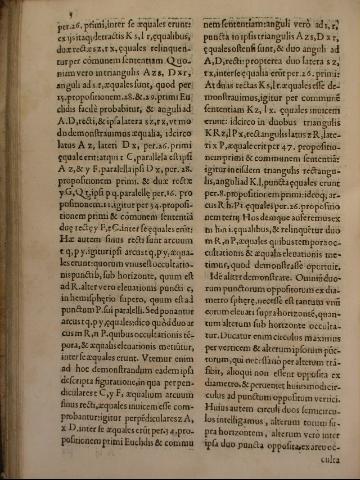 per.26. primi, inter se æquales erunt:
ex ijs itaq; detractis K s, l r, equalibus,
duæ rectæ s z, r x, æquales relinquen-
tur per cōmunem sententiam Quo-
niam vero in triangulis A z s, D x r,
anguli ad s. r. æquales sunt, quod per
15. propositionem. 28. & 29. primi Eu-
clidis facilè probabitur, & anguli ad
A.D. recti, & ipsa latera s z, r x, vt mo
du demonstrauimus æqualia, idcirco
latus A z, lateri D x, per .26. primi
equale erit: at qui t C, parallela est ipsi
A z, & y F, parallela ipsi D x, per .28.
propositionem primi. & duæ rectæ
propositionem primi & cōmunem sententiā
duę recte y F, t C. inter se equales erūt:
Hæ autem sinus recti sunt arcuum
t q, p y. igitur ipsi arcus t q, p y. æqua-
les erunt: quorum vnus est occultatio-
nis punctib, sub horizonte, quum est
ad R. alter vero eleuationis puncti c,
in hemispherio supero, quum est ad
punctum P. sui paralleli. Sed ponantur
arcus t q, p y, equales: dico quòd duo ar
cus m R, n P. quibus occultationis tē-
pora, & æqualis eleuationis metiūtur,
inter se æquales erunt. Vtemur enim
ad hoc demonstrandum eadem ipsa
descripta figuratione, in qua perpen-
diculares t C, y F, æqualium arcuum
sinus recti, æquales inuicem esse com-
probantur: igitur perpēdiculares z A,
x D. inter se æquales erūt per .34. pro-
positionem primi Euclidis & commu
nem sententiam: anguli verò ad s, r,
puncta in ipsis triangulis A z s, D x r,
equales ostensi sunt, & duo anguli ad
A, D, recti: propterea duo latera s z,
r x, inter se equalia erūt per .26. primi:
At duas rectas K s, l r. æquales esse de-
monstrauimus, igitur per communē
sententiam K z, l x. equales inuicem
erunt: idcirco in duobus triangulis
K R z, l P x, rectangulis latus z R, late-
ri x P, æquale erit per 47. proposition-
em primi & communem sententiā:
igitur in eisdem triangulis rectangu-
lis, anguli ad K. l, puncta equales erunt
per.8. propositionem primi: ideoq; ar-
cus R h. P i equales per.26. propositio
nem tertij Hos demque auferemus ex
m h n i. equalibus, & relinquētur duo
m R, n P, æquales quibus tempora oc-
cultationis & æqualis eleuationis me-
timur, quod demonstrasse oportuit.
Id aliter demonstrate. Quūm duo-
rum punctorum oppositorum ex dia-
metro spheræ, necesse est tantum vnū
eorum eleuari supra horizontē, quan-
tum alterum sub horizonte occulta-
tur. Ducatur enim circulus maximus
per verticem & alterum ipsorum pūc-
torum, qui necessario per alterum trā-
sibit, alioqui non essent opposita ex
diametro, & perueniet huiusmodi cir-
culus ad punctum oppositum vertici.
Huius autem circuli duos semicircu-
los intelligamus, alterum totum su-
pra horizontem, alterum verò inter
ipsa duo puncta opposita, ex arcu oc-
culta